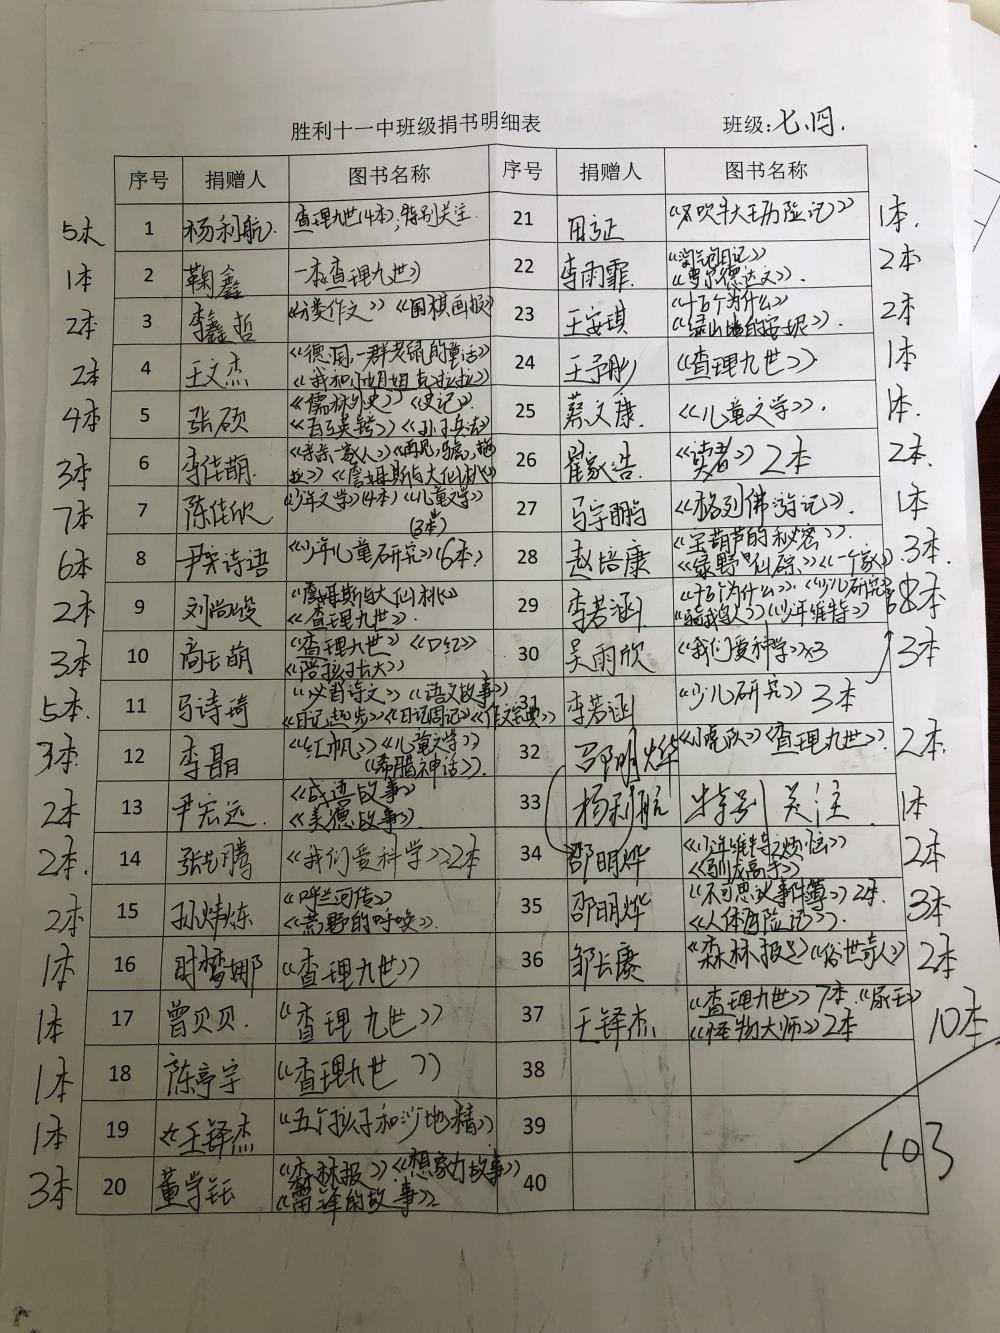 胜利十一中班级捐书明细表 班级:七.四.
序号 捐赠人 图书名称 序号 捐赠人 图书名称
5本 1 杨利航. 查理九世(4本);特别关注. 21 《吹牛大王历险记》 1本.
1本 2 鞠鑫 一本查理九世》 22 李雨霏
《曹尔德达文》. 2本
2本 3 李鑫哲 《分类作文》《围棋画报》 23 王安琪 《十万个为什么》
《绿山墙的安妮》. 2本
2本 4 王文杰 《德国,一群老鼠的童话》
《我和小姐姐克拉拉》 24 王予彤 《查理九世》 1本
4本 5 张硕 《儒林外史》《史记》
《孙子兵法》 25 蔡文康. 《儿童文学》. 1本.
3本 6 李佳萌. 《亲亲一家人》《再见,
》《詹姆斯的大仙桃》 26 翟家浩 《读者》2本 2本.
7本 7 陈佳欣 《少年文学》(4本)《儿童文学》
(3本) 27 马宇鹏 《格列佛游记》. 1本
6本 8 尹奕诗语 《少年儿童研究》(6本) 28 赵培康 《宝葫芦的秘密》.
《绿野仙踪》《一个家》 3本
2本 9 刘尚俊 《詹姆斯的大仙桃》
《查理九世》. 29 李若涵. 《十万个为什么》.《少儿研究》
《少年维特》 8本
3本 10 高玉萌 《查理九世》《口红》
《陪孩子长大》 30 吴雨欣 《我们爱科学》×3 3本
5本. 11 马诗琦 《必背诗文》《语文故事》
《日记起步》《日记周记》《作文宝典》 31 李若涵 《少儿研究》3本
3本. 12 李晶 《红帆》《儿童文学》
《希腊神话》. 32 邵明烨 《小虎队》《查理九世》. 2本.
2本 13 尹宏远. 《成语故事》
《美德故事》 33 杨利航 特别关注 1本
2本. 14 张艺腾 《我们爱科学》2本 34 邵明烨 《少年维特之烦恼》
《驯龙高手》 2本
2本 15 孙炜炼 《呼兰河传》
《荒野的呼唤》. 35 邵明烨 《不可思议事件簿》2本.
《人体历险记》. 3本
1本 16 时梦娜 《查理九世》 36 邹长赓 《森林报》《俗世奇人》 2本
1本 17 曾贝贝. 《查理九世》 37 王铎杰 《查理九世》7本.《尿王》
《怪物大师》2本 10本
1本 18 陈亭宇 《查理九世》 38
1本 19 王铎杰 《五个孩子和沙地精》 39
3本 20 董学钰 《森林报》《想象力故事》
《雷锋的故事》 40
103